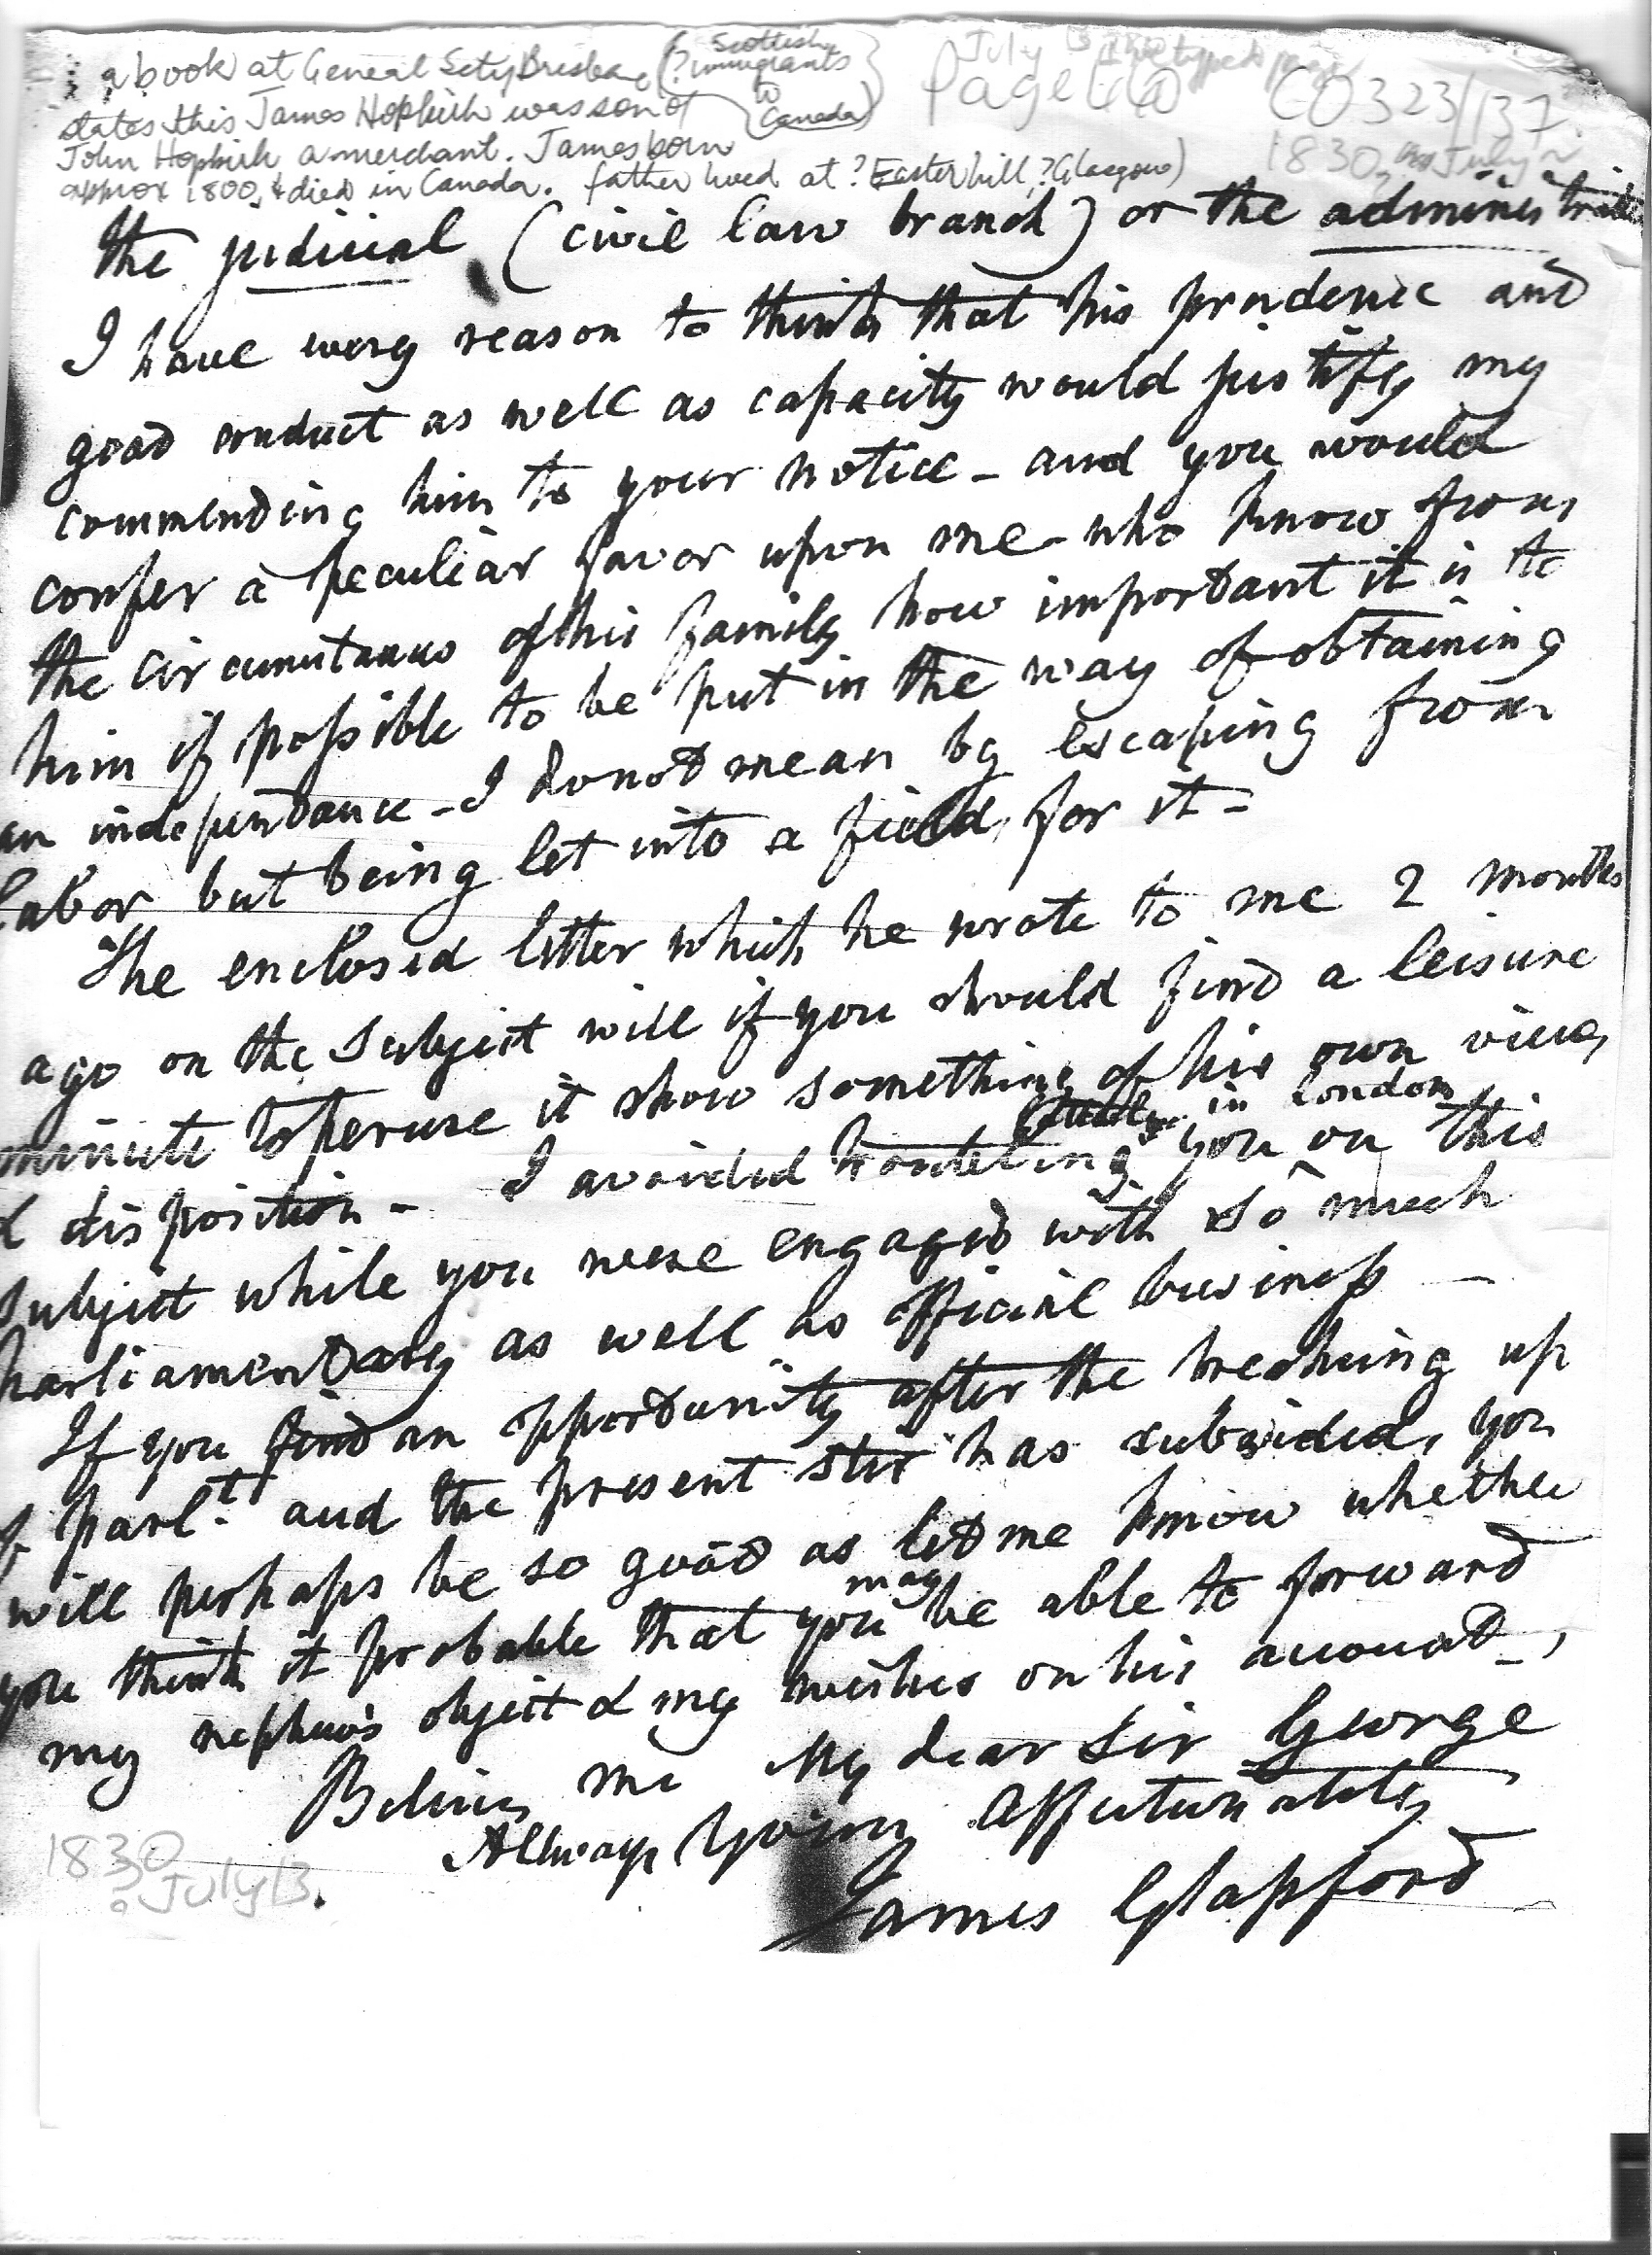 a book at General Scty Brisbane (? Scottish immigrants to Canada)
states this James Hopkirk was son of
John Hopkirk a merchant. James born
approx 1800, & died in Canada. father lived at ? Easterhill, ? Glasgow)
July 13 1830 typed
Page
CO323/137
1830, July
the judicial (civil law branch) or the administrative
I have every reason to think that his prudence and
good conduct as well as capacity would justify my
commending him to your notice - and you would
confer a peculiar favor upon me who know from
the circumstances of his family how important it is to
him if possible to be put in the way of obtaining
an independance - I do not mean by escaping from
labor but being let into a field for it -
The enclosed letter which he wrote to me 2 months
ago on the subject will if you should find a leisure
minute to peruse it show something of his own views
& disposition - I avoided troubling you in London on this
subject while you were engaged with so much
parliamentary as well as official business -
If you find an opportunity after the breaking up
of parlt. and the present stir has subsided, you
will perhaps be so good as let me know whether
you think it probable that you may be able to forward
my nephew's object & my wishes on his account -,
Believe me My dear Sir George
Always Yours affectionately
James Glassford
1830
? July 13.